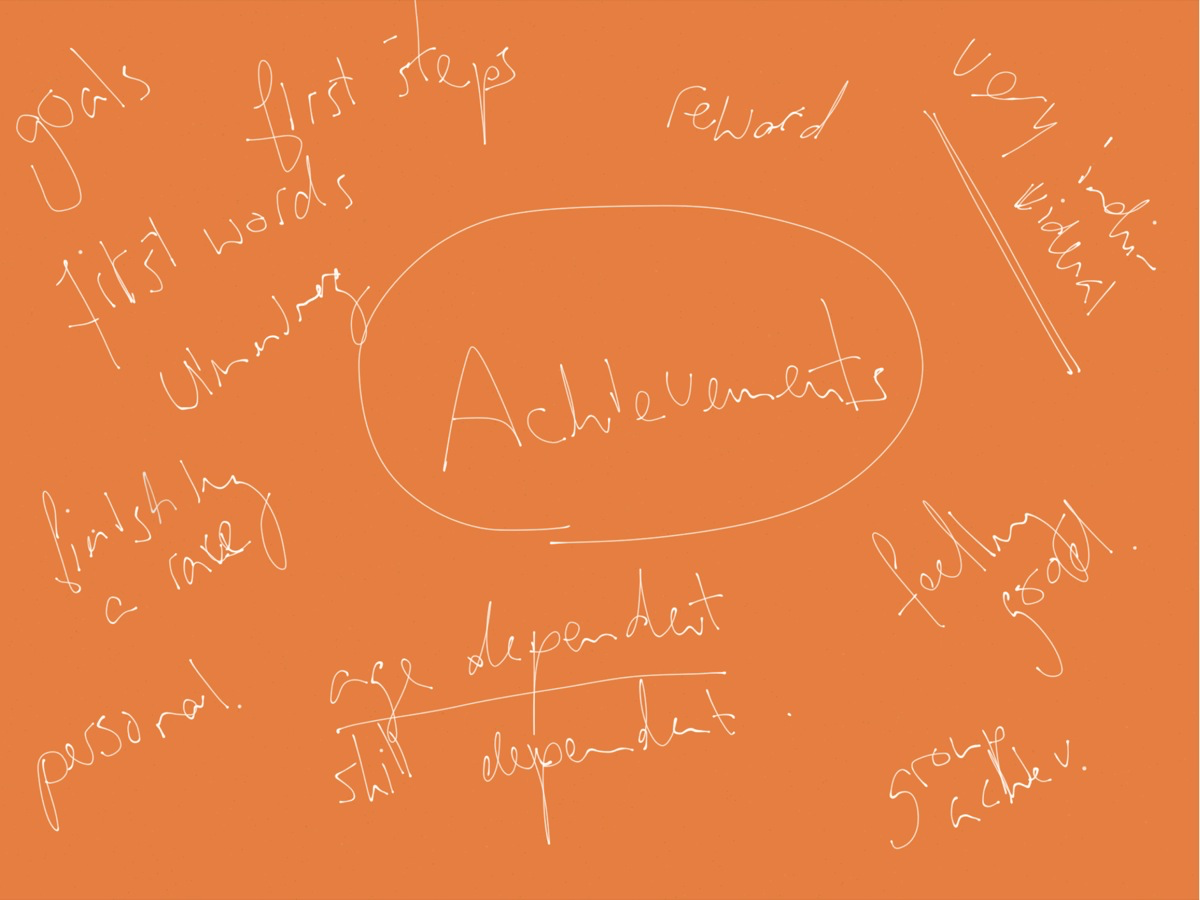 goals
first steps
reward
very indiv.
first words
Achievements
finishing
a race
feeling
good.
age dependent
skill dependent.
personal.
group
achiev.